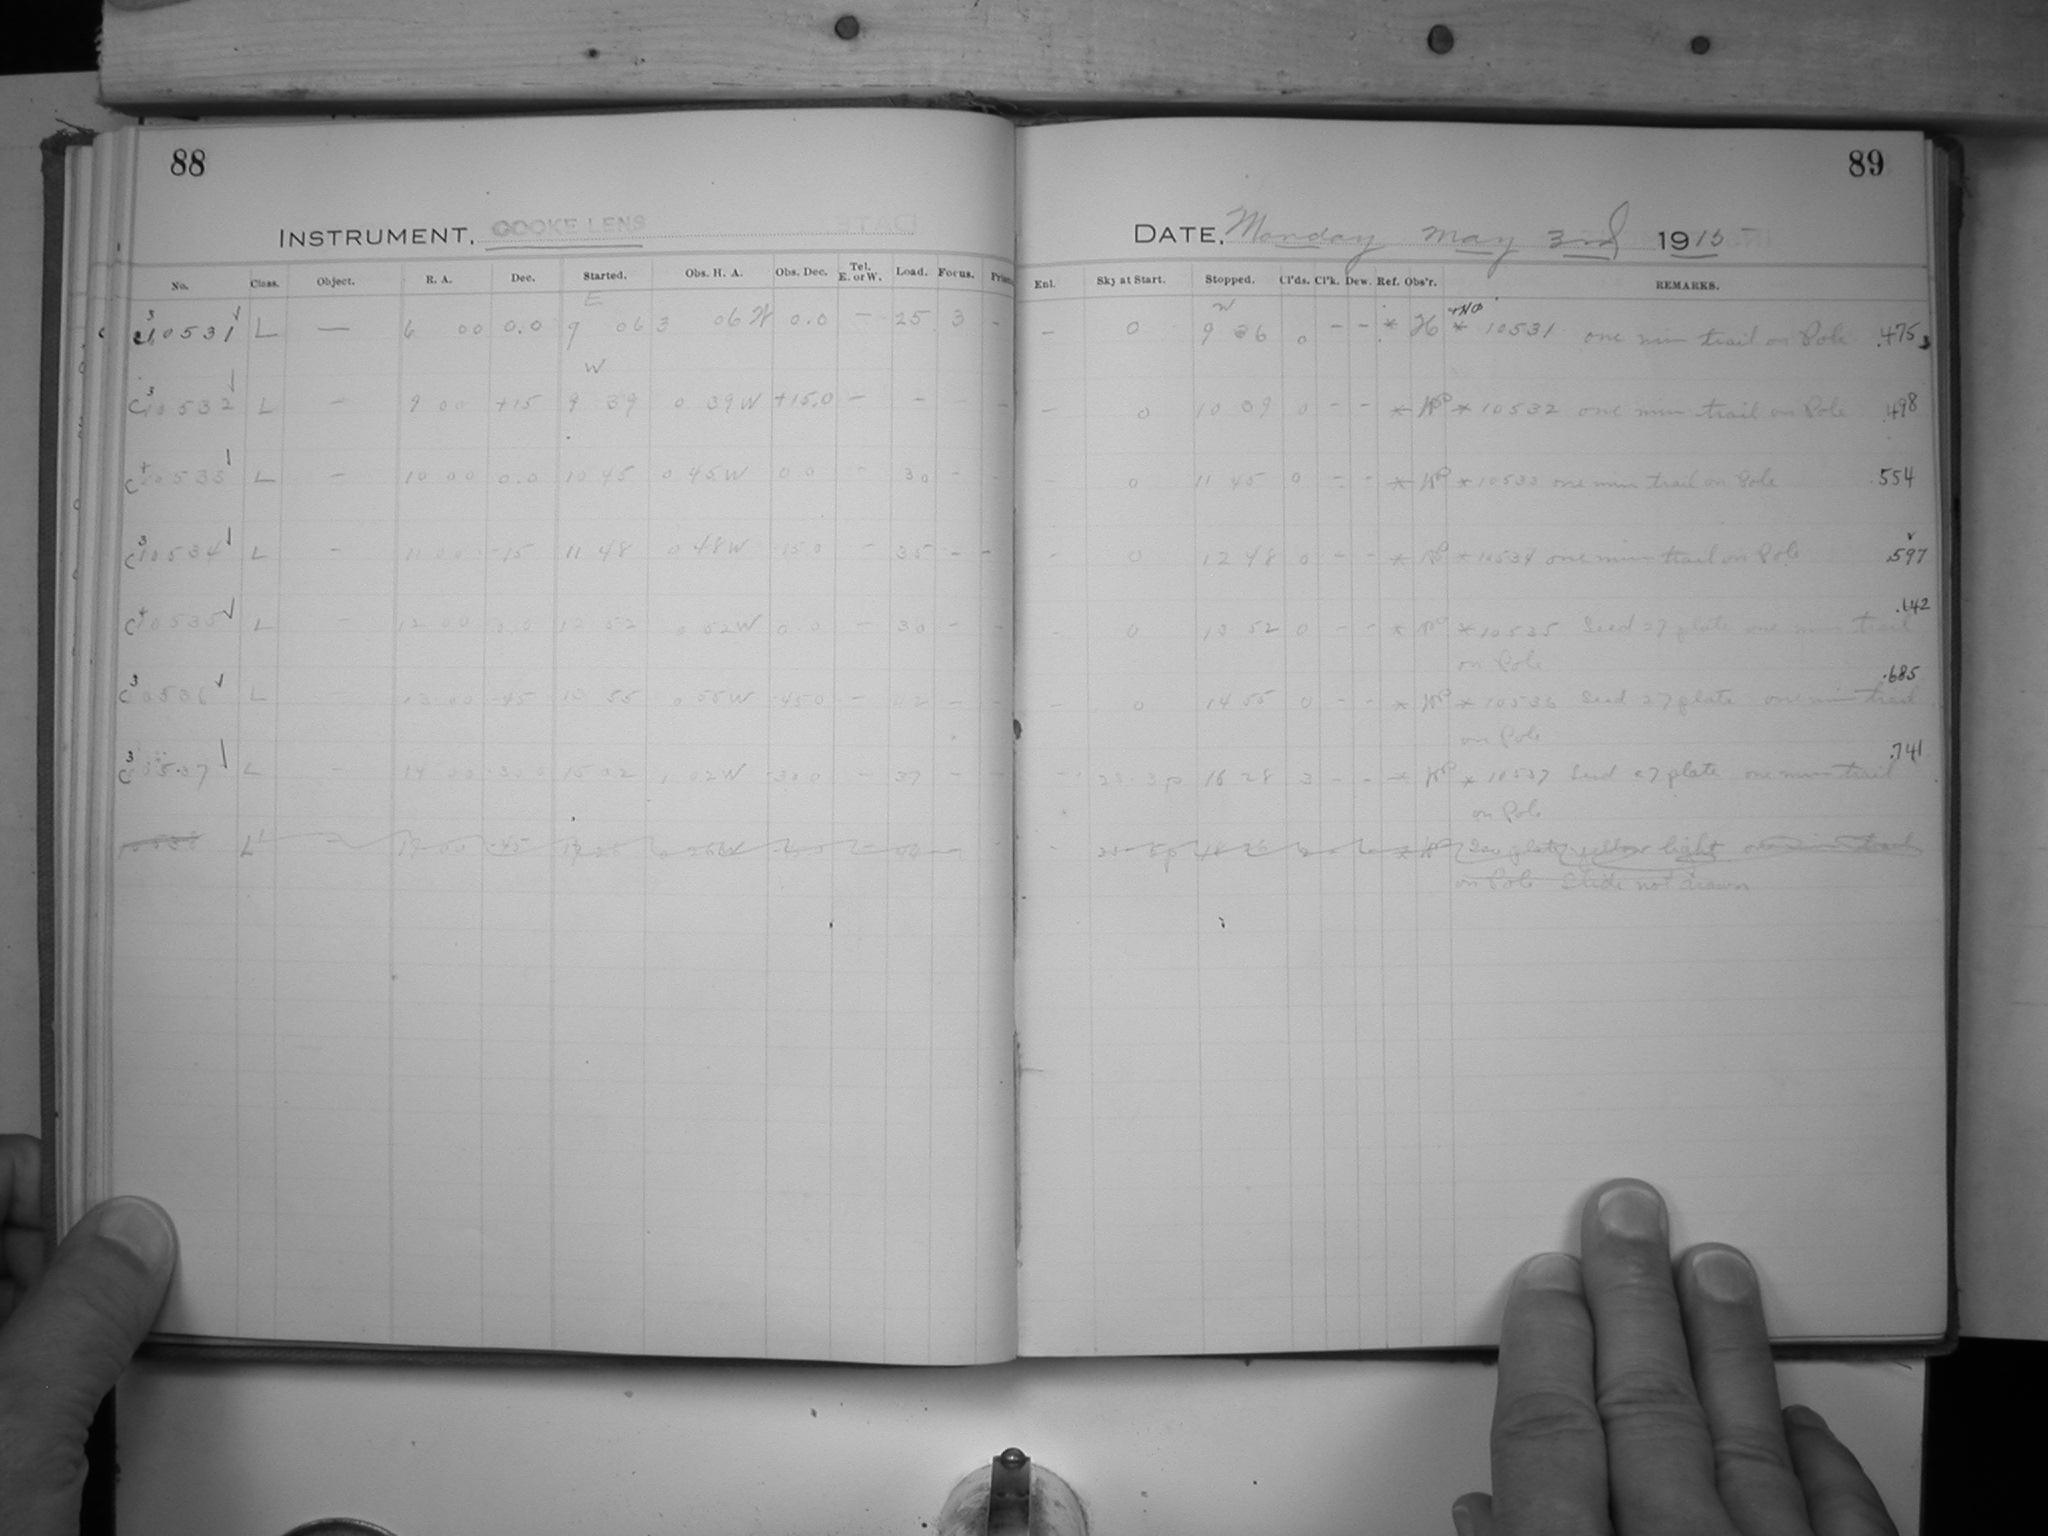 88
INSTRUMENT. COOKE LENS
No. Class. Object. R. A. Dec. Started. Obs. H. A. Obs. Dec. Tel. E. or W. Load. Focus.
E
10531 L — 6 00 0.0 9 06 3 06 W 0.0 — 25 3 -
W
10532 L - 9 00 +15 9 39 0 39W +15.0 - - - -
10533 L - 10 00 0.0 10 45 0 45W 0.0 - 30 - -
10534 L - 11 00 -15 11 48 0 48W -15.0 - 35 - -
10535 L - 12 00 0.0 12 52 0 52W 0.0 - 30 - -
10536 L - 13 00 -45 13 55 0 55W -45.0 - 42 - -
10537 L - 14 00 -30.0 15 02 1 02W -30.0 - 37 - -
89
DATE, Monday May 3rd 1915
Enl. Sky at Start. Stopped. Cl'ds. Cl'k. Dew. Ref. Obs'r. REMARKS.
W
- 0 9 36 0 - - * H * 10531 one min trail on Pole .475
- 0 10 39 0 - - * * 10532 one min trail on Pole .498
- 0 11 45 0 - - * * 10533 one min trail on Pole .554
- 0 12 48 0 - - * * 10534 one min trail on Pole .597
- 0 13 52 0 - - * * 10535 Seed 27 plate one min trail .642
on Pole
- 0 14 55 0 - - * * 10536 Seed 27 plate one min trail .685
on Pole
- 16 28 3 - - * * 10537 Seed 27 plate one min trail .741
on Pole
yellow light one min trail
on Pole Slide not drawn